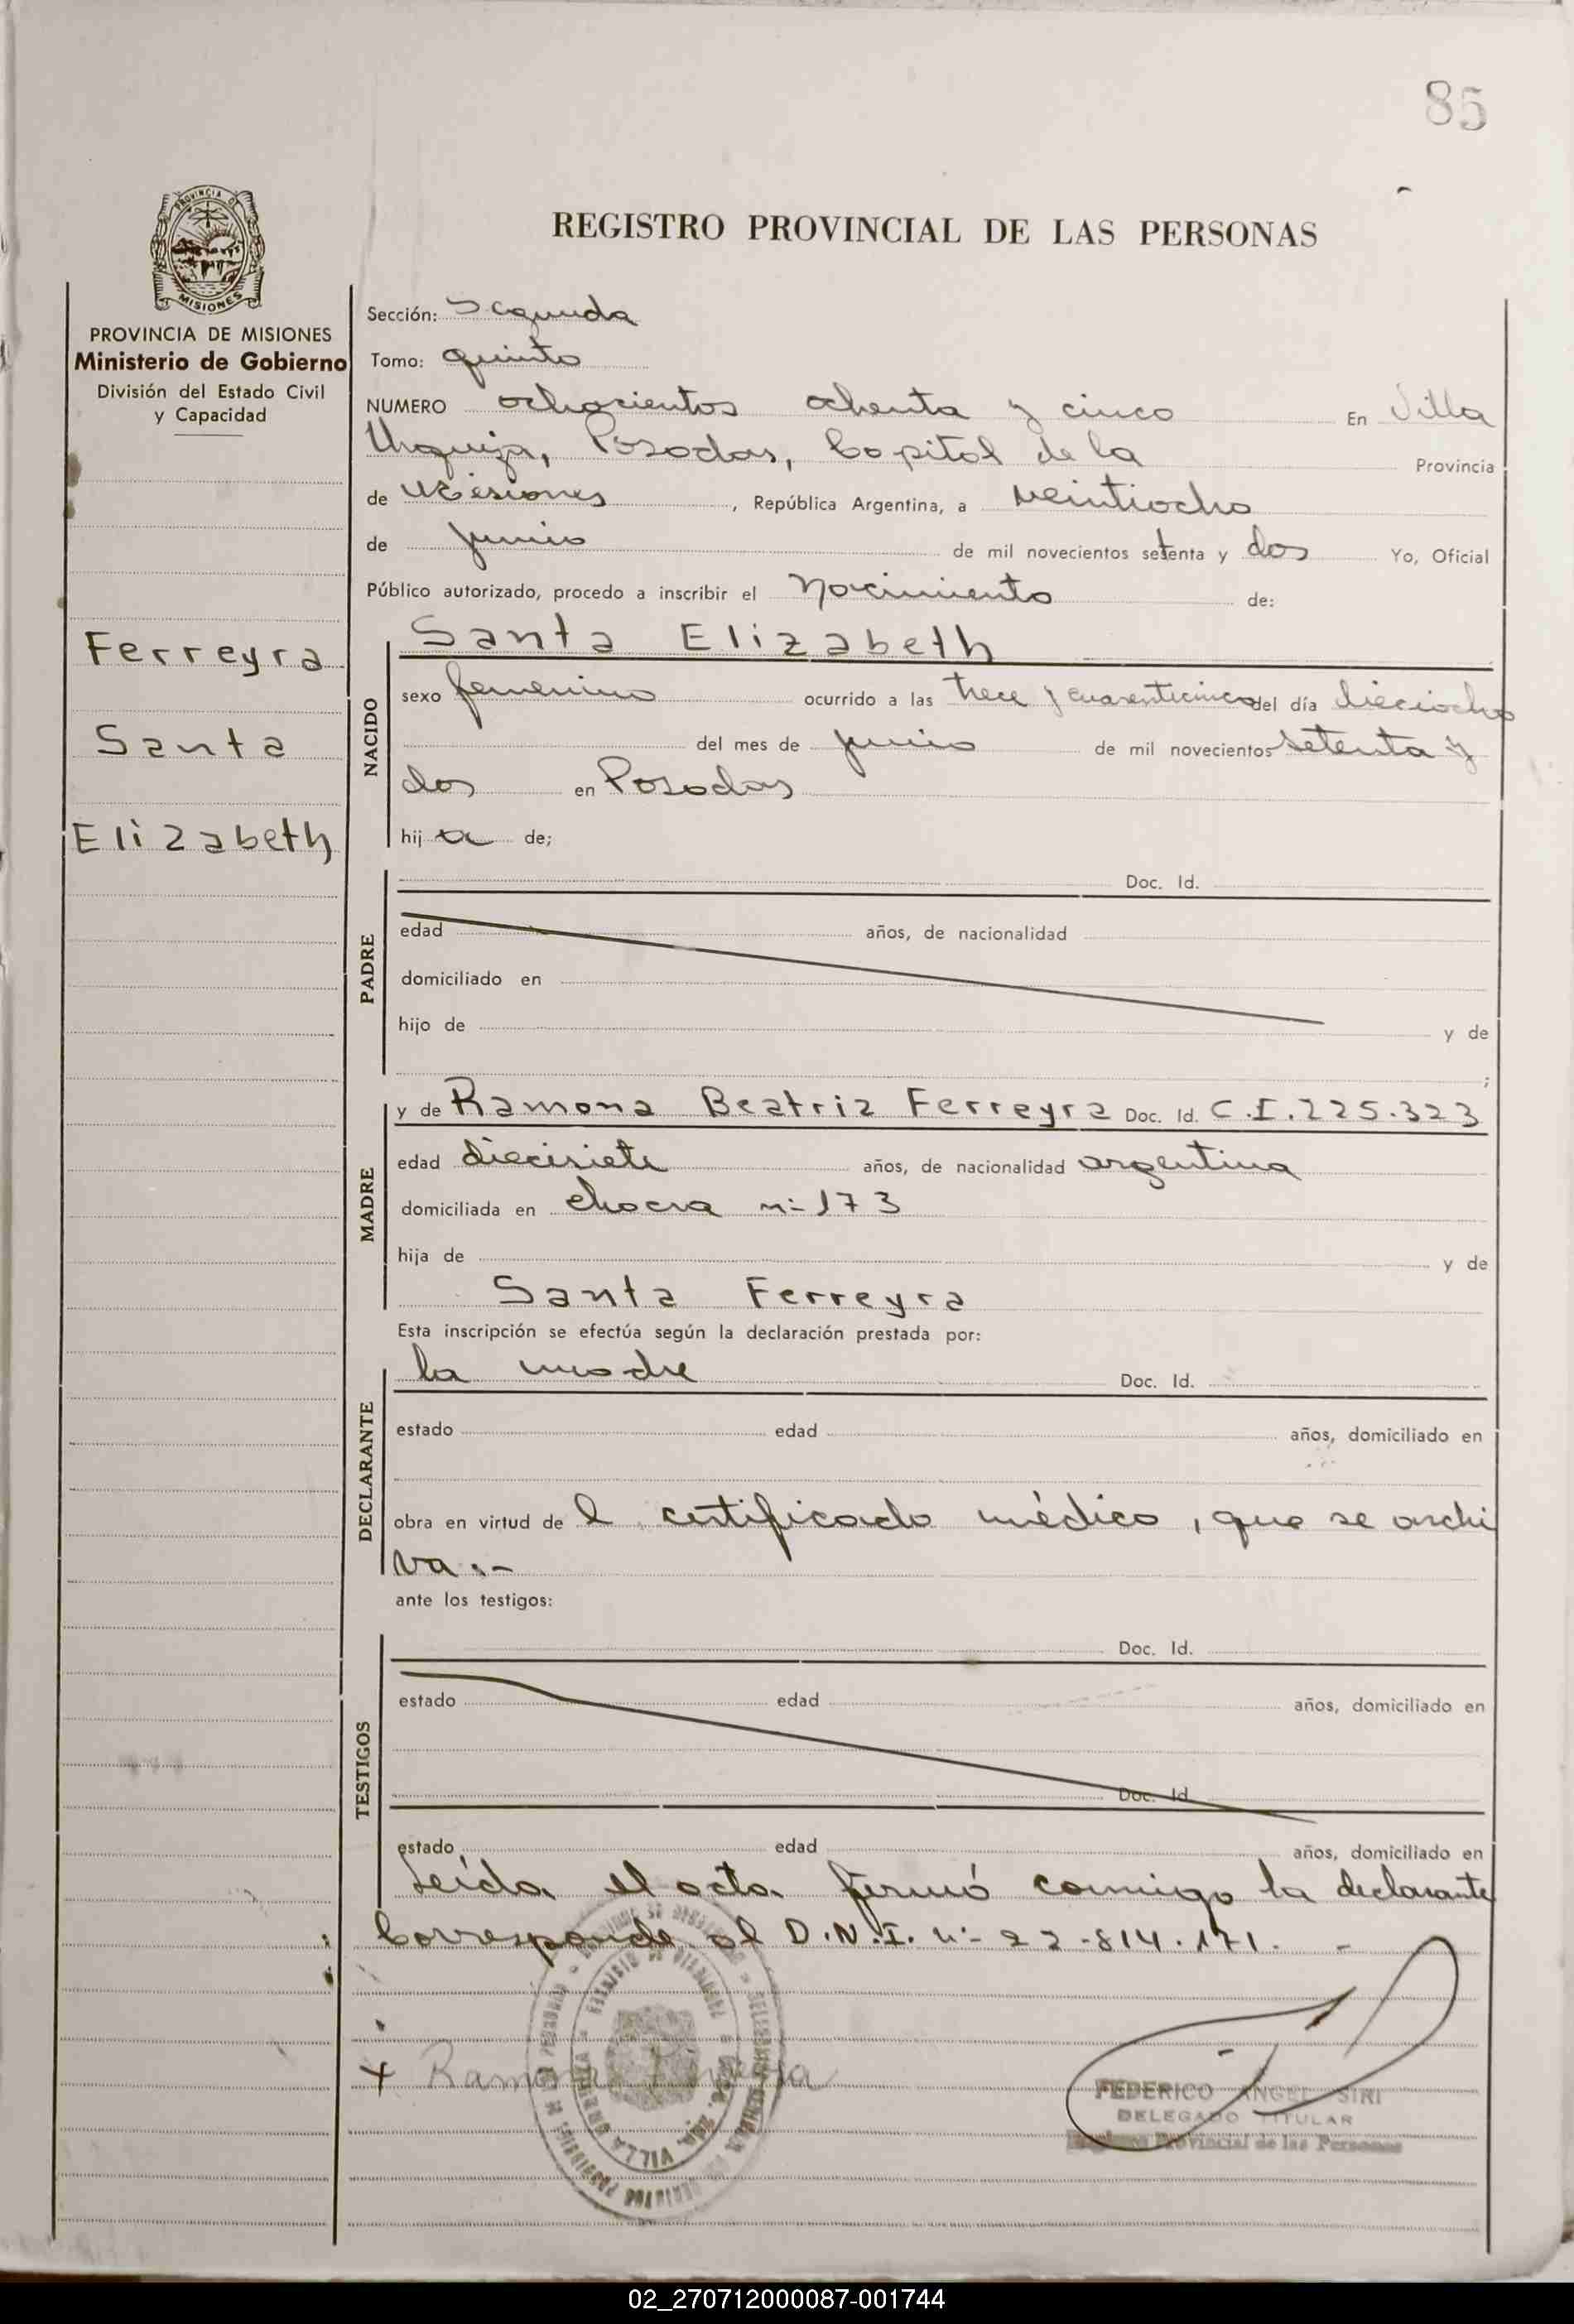 85
PROVINCIA DE
MISIONES
REGISTRO PROVINCIAL DE LAS PERSONAS
PROVINCIA DE MISIONES
Ministerio de Gobierno
División del Estado Civil
y Capacidad
Ferreyra
Santa
Elizabeth
Sección: Segunda
Tomo: quinto
NUMERO ochocientos ochenta y cinco En Villa
Urquiza, Posadas, Capital de la Provincia
de Misiones, República Argentina, a veintiocho
de junio de mil novecientos setenta y dos Yo, Oficial
Público autorizado, procedo a inscribir el nacimiento de:
NACIDO
Santa Elizabeth
sexo femenino ocurrido a las trece y cuarenticinco del día dieciocho
del mes de junio de mil novecientos setenta y
dos en Posadas
hija de;
PADRE
Doc. Id.
edad años, de nacionalidad
domiciliado en
hijo de y de
;
MADRE
y de Ramona Beatriz Ferreyra Doc. Id. C.I. 225.323
edad diecisiete años, de nacionalidad argentina
domiciliada en chacra nº 173
hija de y de
Santa Ferreyra
Esta inscripción se efectúa según la declaración prestada por:
DECLARANTE
la madre Doc. Id.
estado edad años, domiciliado en
obra en virtud de l certificado médico, que se archi
va.-
ante los testigos:
TESTIGOS
Doc. Id.
estado edad años, domiciliado en
Doc. Id.
estado edad años, domiciliado en
Leída el acta firmó conmigo la declarante
Corresponde al D.N.I. nº 22.814.171. -
+ Ramona Ferreyra
VILLA URQUIZA
FEDERICO ANGEL SIRI
DELEGADO TITULAR
Registro Provincial de las Personas
02_270712000087-001744